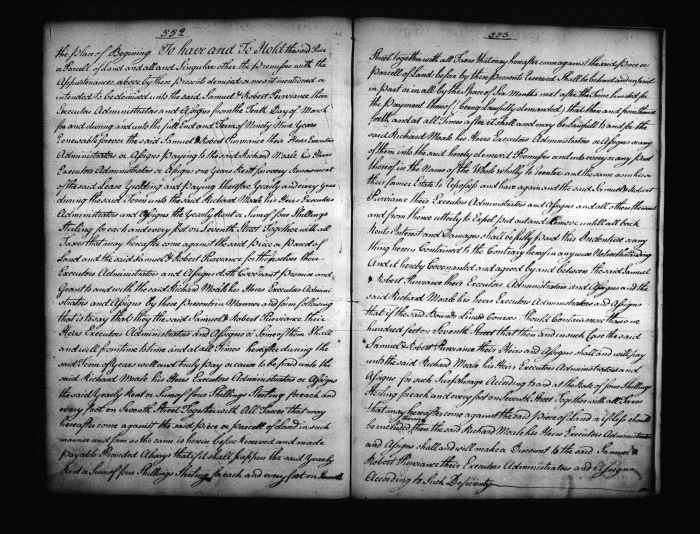 552
the place of Begining To have and To Hold the said Piece
or Parcele of Land and all and Singular other the Premises with the
Appurtenances above by these Presents demised or meant mentioned or
intended to be demised unto the said Samuel & Robert Purviance their
Executors Administrators and Assigns from the Tenth Day of March
for and during and unto the full End and Term of Ninety Nine Years
Renewable forever the said Samuel & Robert Purviance their Heirs Executors
Administrators or Assigns Paying to the said Richard Moale his Heirs
Executors Administrators or Assigns one Years Rent for every Renewment
of the said Lease Yielding and Paying therefore Yearly and every Year
during the said Term unto the said Richard Moale his Heirs Executors
Administrators and Assigns the Yearly Rent or Sum of four Shillings
Sterling for each and every foot on Seventh Street Together with all
Taxes that may hereafter come against the said piece or parcel of
Land and the said Samuel & Robert Purviance for themselves their
Executors Administrators and Assigns doth Covenant Promise and
Grant to and with the said Richard Moale his Heirs Executors Admini
strators and Assigns by these presents in Manner and form following
that is to say that they the said Samuel & Robert Purviance their
Heirs Executors Administrators and Assigns or Some of them Shall
and will from time to time and at all Times hereafter during the
said Term of Years well and truly Pay or cause to be paid unto the
said Richard Moale his Heirs Executors Administrators or Assigns
the said Yearly Rent or Sum of four Shillings Sterling for each and
every foot on Seventh Street Together with All Taxes that may
hereafter come against the said piece or parcell of Land in such
manner and form as the same is herein before Reserved and made
payable Provided Always that if it shall happen the said Yearly
Rent or Sum of four Shillings Sterling for each and every foot on
553
Street together with all Taxes that may hereafter come against the said piece or
parcell of Land before by these Presents Reserved Shall be behind and unpaid
in part or in all by the Space of Six Months next after the Time limited for
the Payment thereof (being Lawfully demanded) that then and from thence
forth and at all Times after it shall and may be Lawfull to and for the
said Richard Moale his Heirs Executors Administrators or Assigns or any
of them into the said hereby demised Premises and into every or any Part
thereof in the Name of the Whole Wholly to reenter and the same as in his or
their former Estate to Repossess and have again and the said Samuel & Robert
Purviance their Executors Administrators and Assigns and all others thereout
and from thence utterly to Expel put out and Remove untill all back
Rents Interest and Damages shall be fully paid this Indenture or any
thing herein Contained to the Contrary hereof in any wise Notwithstanding
And it hereby Covenanted and agreed by and between the said Samuel
& Robert Purviance their Executors Administrators and Assigns and the
said Richard Moale his Heirs Executors Administrators and Assigns
that if the said Bounds Lines Courses Should Contain more than one
hundred feet on Seventh Street that then and in such Case the said
Samuel & Robert Purviance their Heirs and Assigns shall and will pay
unto the said Richard Moale his Heirs Executors Administrators and
Assigns for such Surplusage According to and at the Rate of four Shillings
Sterling for each and every foot on Seventh Street Together with all Taxes
that may hereafter come against the said piece of Land or if less should
be included then the said Richard Moale his Heirs Executors Administrators
and Assigns shall and will make a Discount to the said Samuel &
Robert Purviance their Executors Administrators and Assigns
According to Such Deficiency